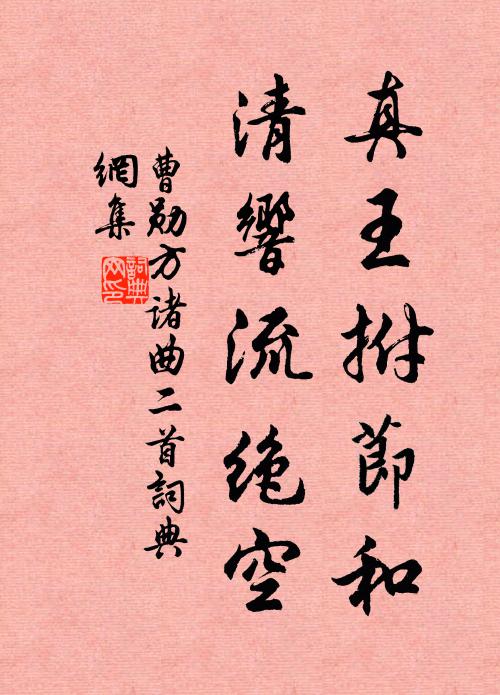 真王拊節和
清響流絶空
曹勛方諸曲二首詞典
網集
詞典網印